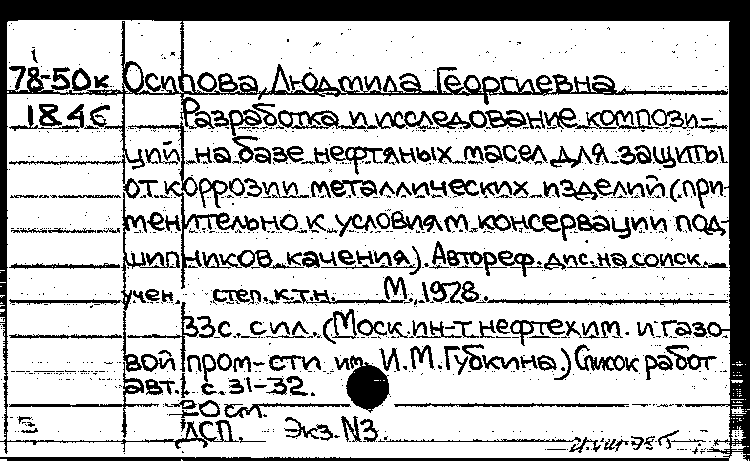 78-50к Осипова, Людмила Георгиевна
1846 Разработка и исследование компози-
ций на базе нефтяных масел для защиты
от коррозии металлических изделий (при-
менительно к условиям консервации под-
шипников качения). Автореф. дис. на соиск.
учен. степ. к.т.н. М., 1978.
33с. с ил. (Моск. ин-т нефтехим. и газо-
вой пром-сти им. И.М. Губкина.) Список работ
авт. с. 31-32.
20 см.
ДСП. Экз. №3.